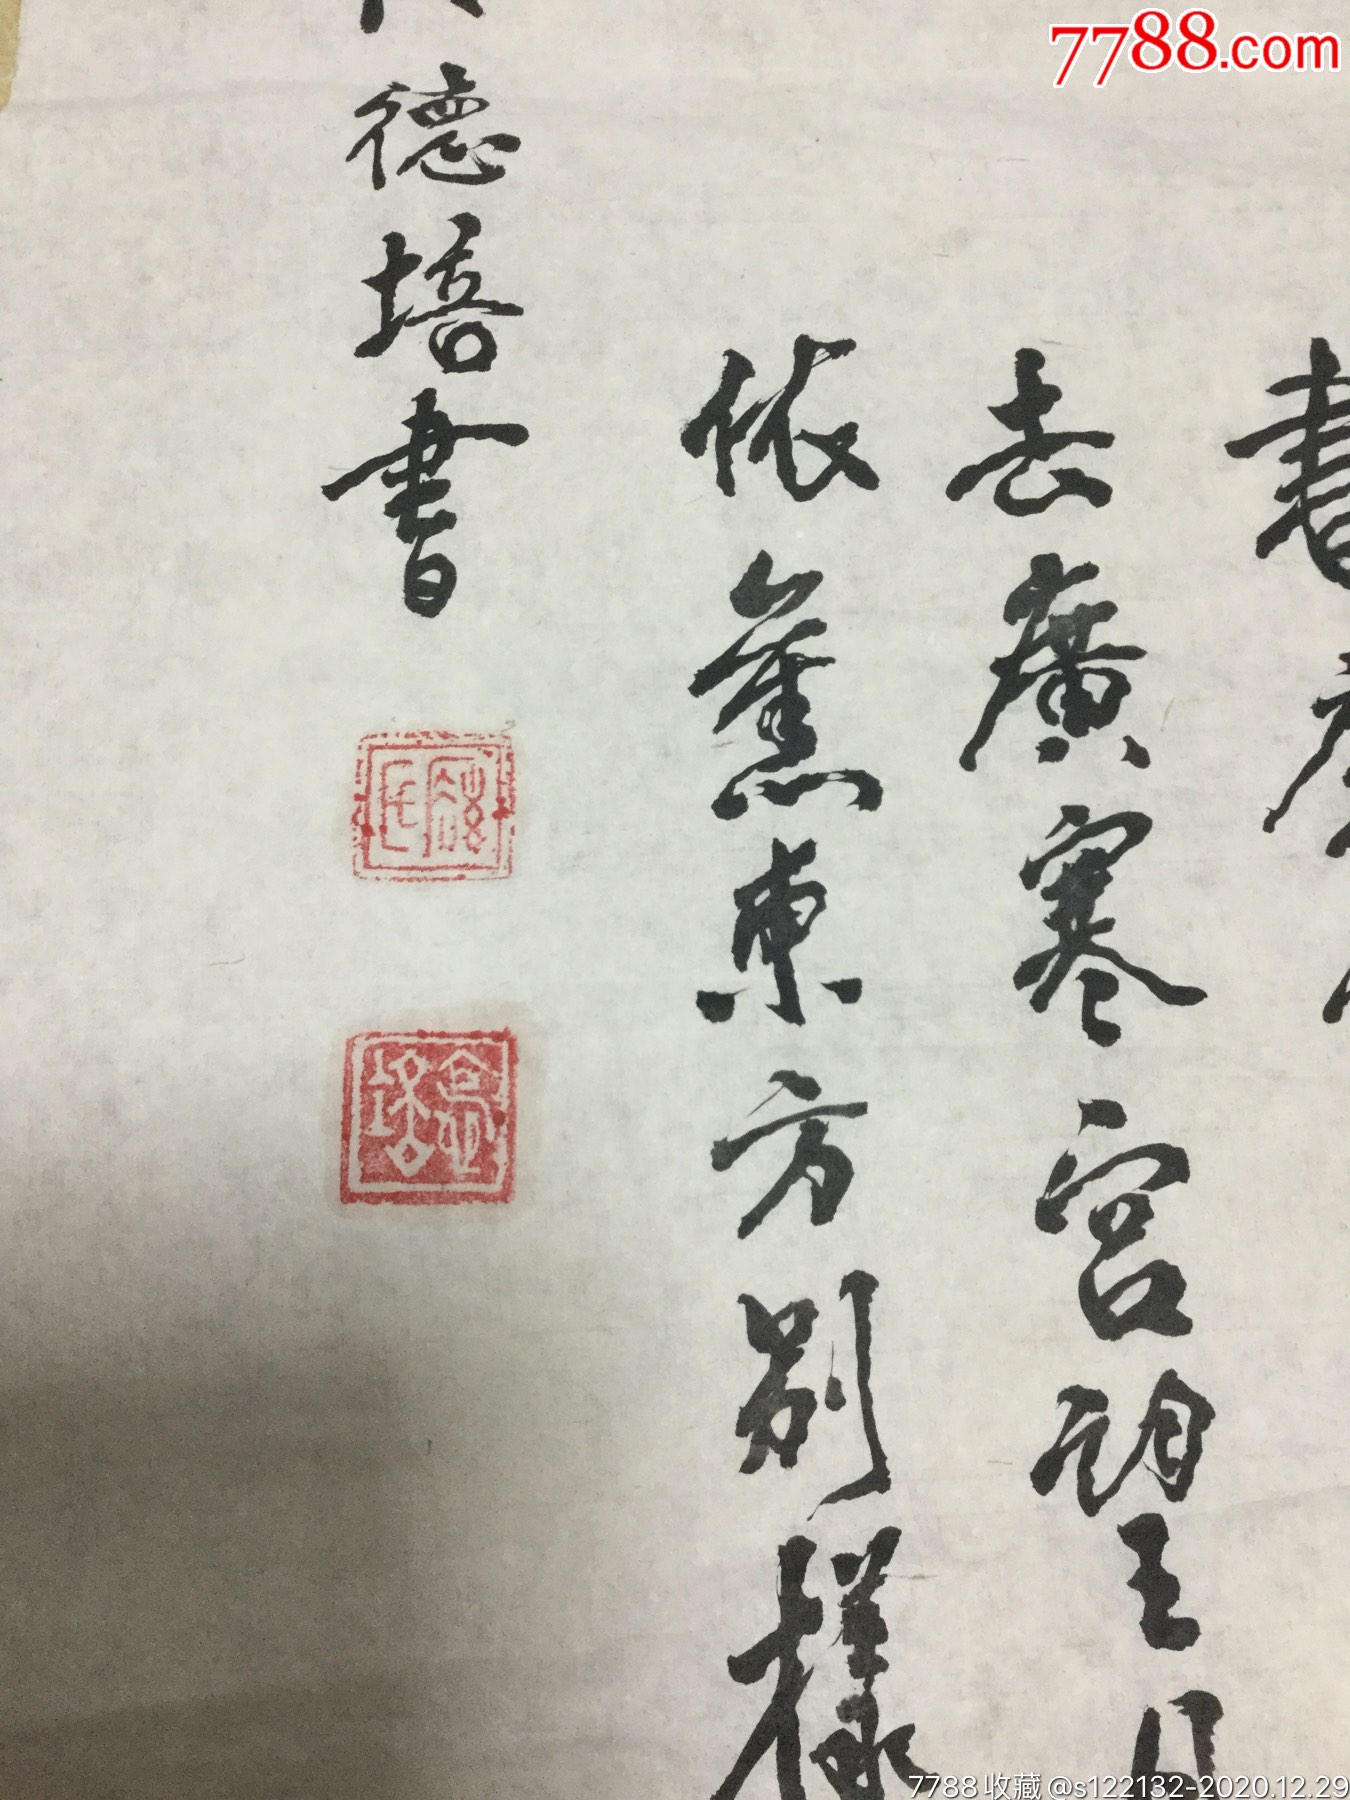 7788.com
書
去廣寒宮望
依舊東方別樣
德培書
德培
7788收藏 @s122132-2020.12.29